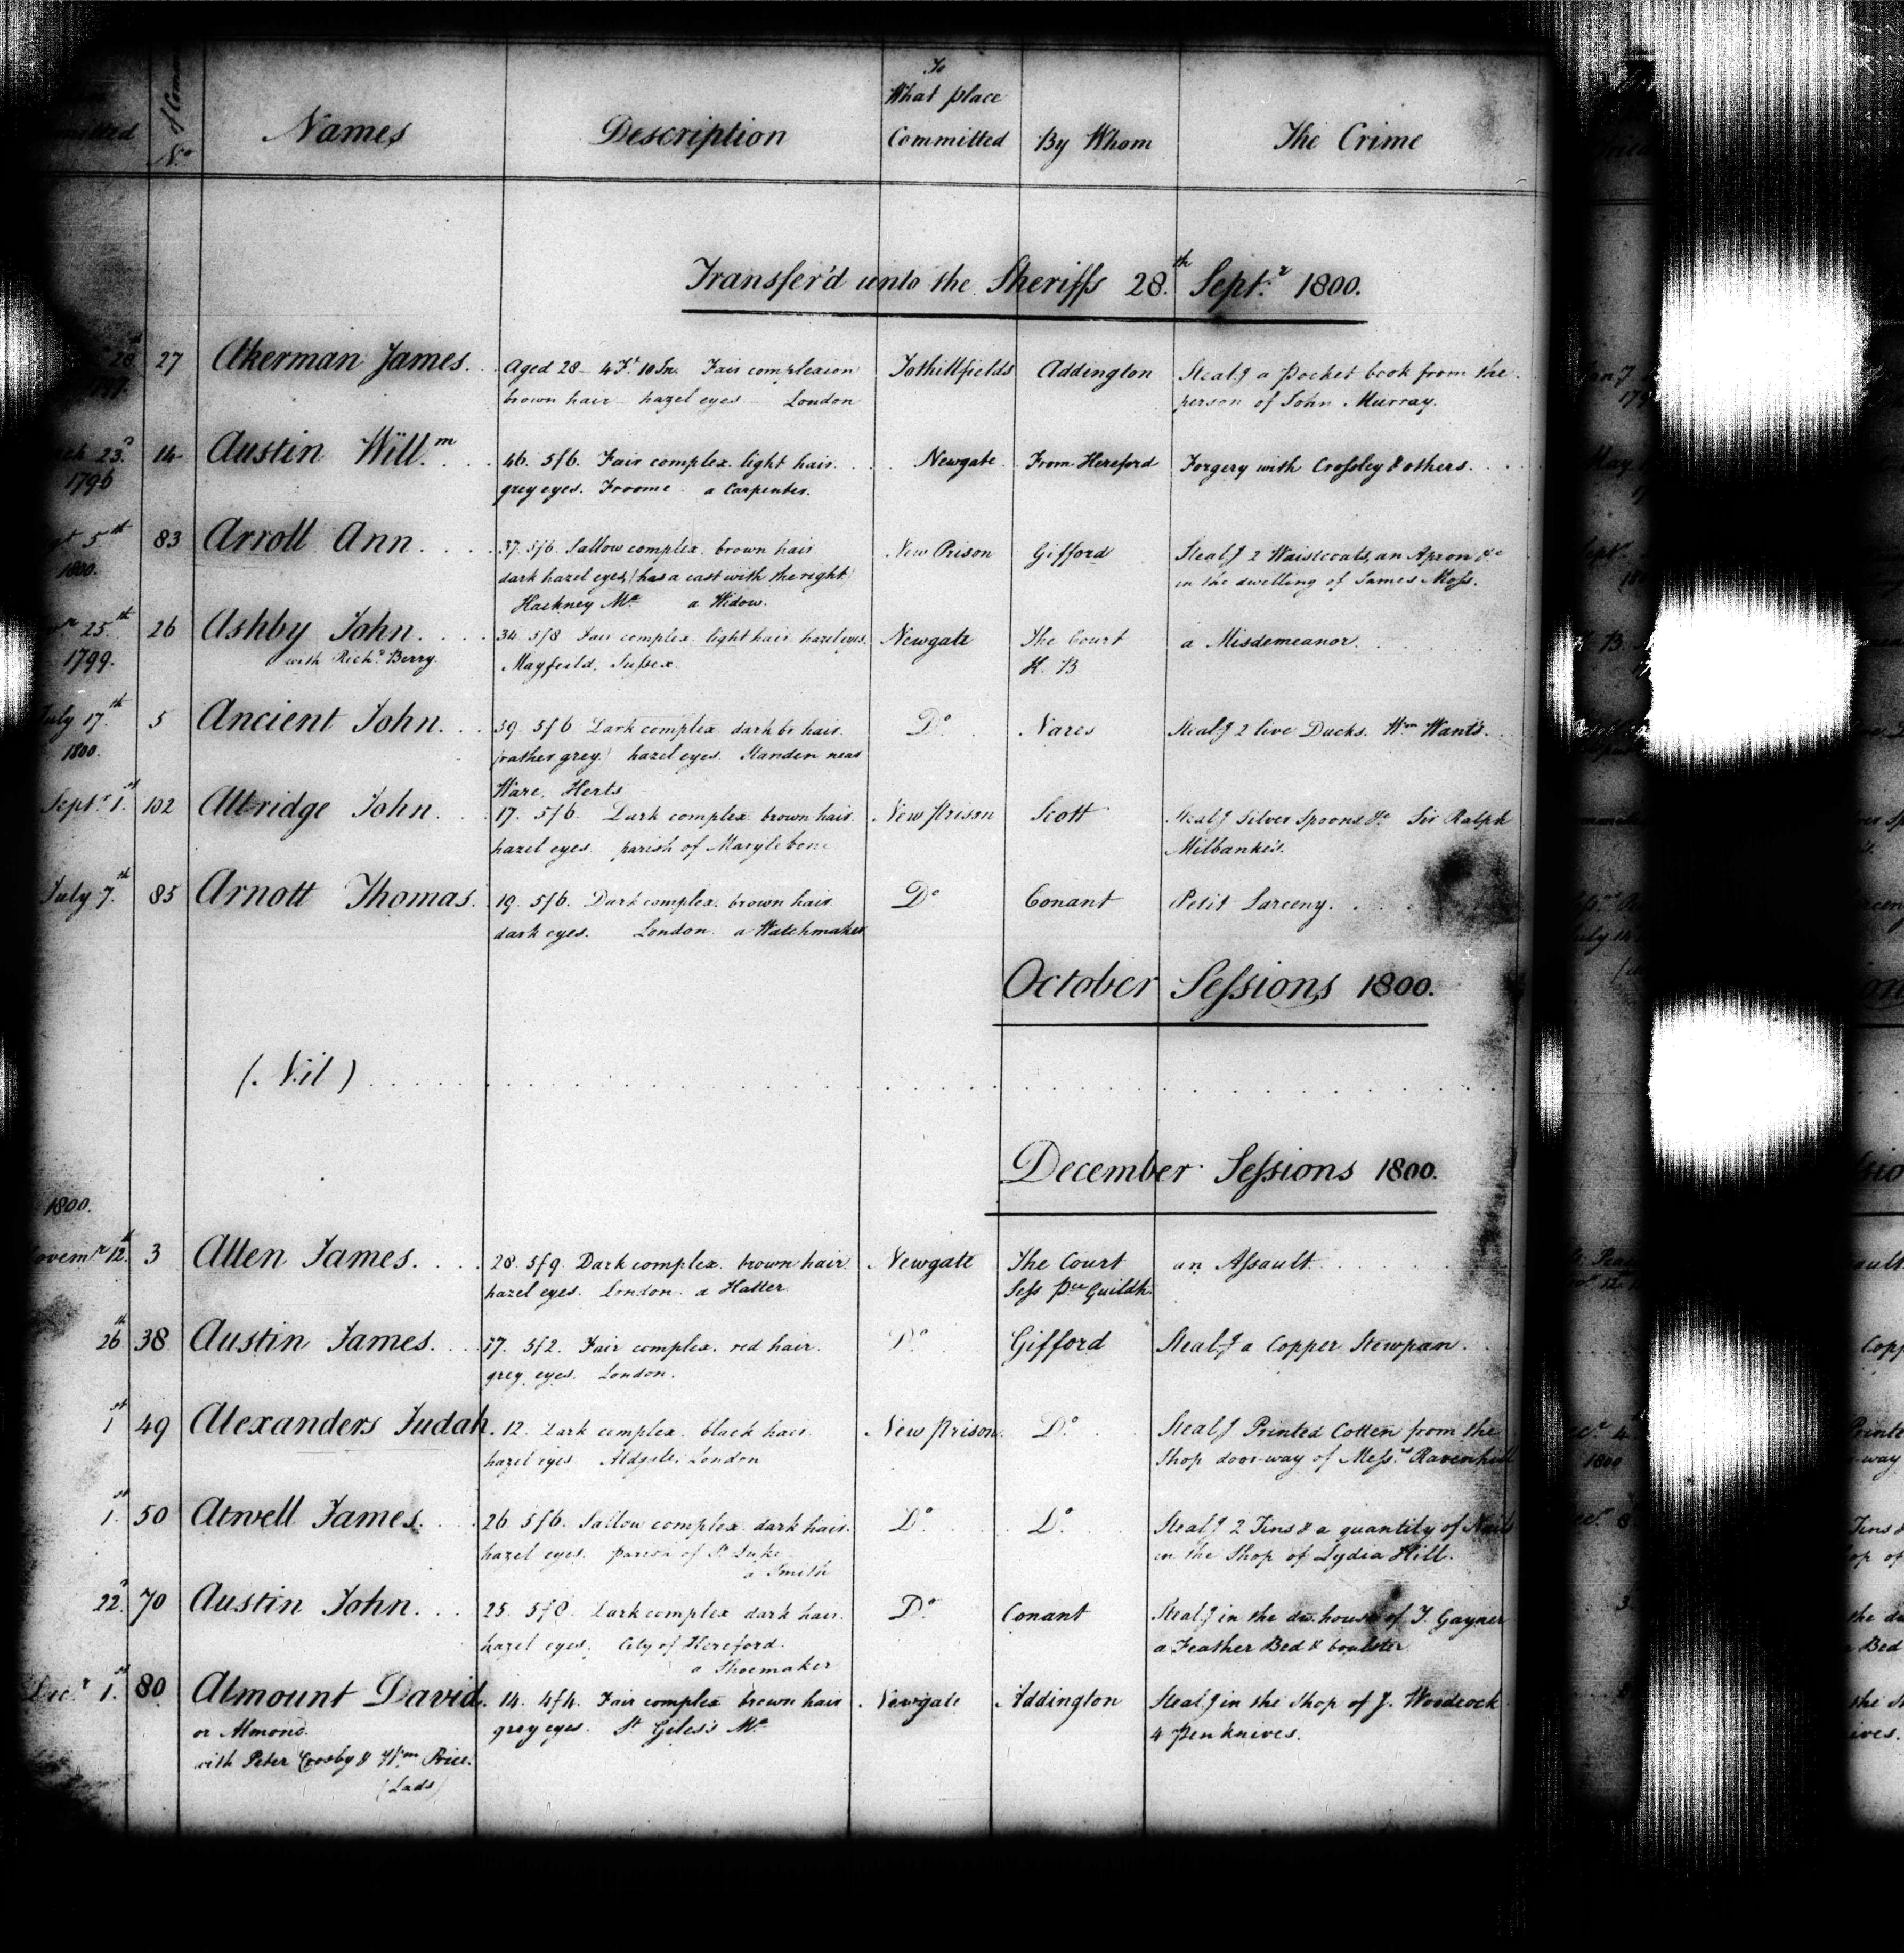 To
What place
Committed
No. of Comm
Names
Description
Committed
By Whom
The Crime
Transfer'd unto the Sheriffs 28.th Sept.r 1800.
28 27 Akerman James. Aged 28 4 Ft. 10 In. Fair complexion Tothillfields Addington Steal.g a Pocket book from the
brown hair hazel eyes London person of John Murray.
23.d 14 Austin Will.m 46. 5f6. Fair complex. light hair Newgate From Hereford Forgery with Crossley & others.
1796 grey eyes. Froome a Carpenter.
5th 83 Arroll Ann. 37. 5f6. Sallow complex. brown hair New Prison Gifford Steal.g 2 Waistcoats, an Apron &c
1800. dark hazel eyes, (has a cast with the right) in the dwelling of James Moss.
Hackney Mx. a Widow.
25.th 26 Ashby John. 34. 5f8 Fair complex. light hair hazel eyes. Newgate The Court a Misdemeanor.
1799. with Rich.d Berry. Mayfeild, Sussex. K. B
July 17.th 5 Ancient John. 59 5f6 Dark complex dark br hair. Do. Nares Steal.g 2 live Ducks. Wm Wants.
1800. (rather grey) hazel eyes. Standen near
Ware, Herts
Sept.r 1.st 102 Altridge John. 17. 5f6. Dark complex brown hair. New Prison Scott Steal.g Silver Spoons &c Sir Ralph
hazel eyes parish of Marylebone Milbanke's.
July 7.th 85 Arnott Thomas. 19. 5f6. Dark complex. brown hair Do Conant Petit Larceny.
dark eyes. London a Watchmaker
October Sessions 1800.
(Nil)
December Sessions 1800.
1800.
Novem.r 12.th 3 Allen James. 28. 5f9. Dark complex. brown hair Newgate The Court an Assault
hazel eyes. London. a Hatter Sess Guildh.
26th 38 Austin James. 17. 5f2. Fair complex. red hair. Do. Gifford Steal.g a Copper Stewpan.
grey eyes. London.
1st 49 Alexanders Judah. 12. Dark complex. black hair New Prison. Do. Steal.g Printed Cotten from the
hazel eyes Aldgate. London Shop door-way of Mess.rs Ravenhill
1.st 50 Atwell James. 26 5f6. Sallow complex. dark hair. Do. Do. Steal.g 2 Tins & a quantity of Nails
hazel eyes. parish of St Luke in the Shop of Lydia Hill.
a Smith
22.d 70 Austin John. 25. 5f8. Dark complex dark hair. Do. Conant Steal.g in the dw.house of T. Gayner
hazel eyes. City of Hereford. a Feather Bed & boulster
a Shoemaker
Dec.r 1.st 80 Almount David. 14. 4f4. Fair complex brown hair Newgate Addington Steal.g in the Shop of J. Woodcock
or Almond. grey eyes. St Giles's Mx 4 Penknives.
with Peter Crosby & Wm. Price.
(Lads)